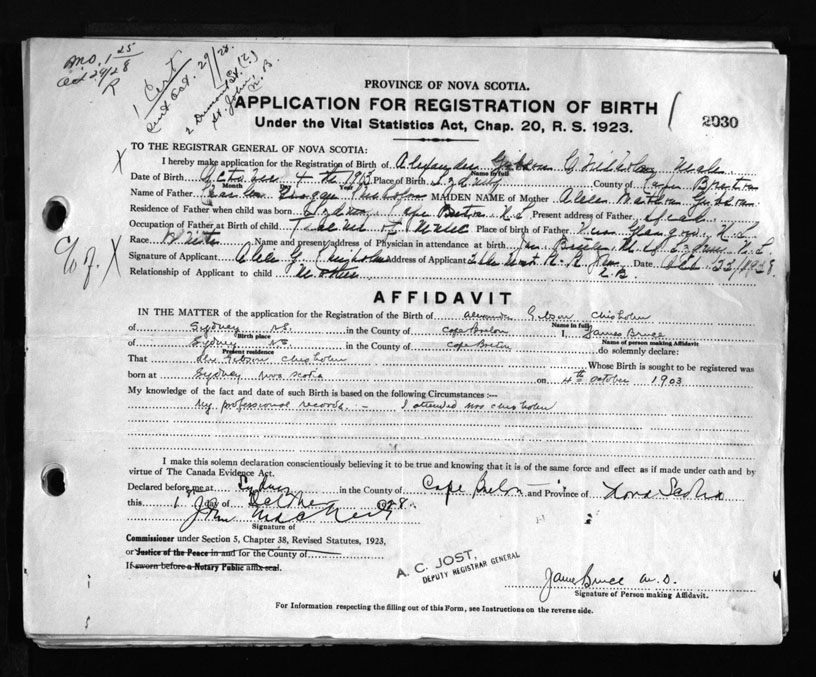 Mo. 1 25
Oct 29/28
R
1 Cert
sent Oct. 29/28.
St. John, N. B.
PROVINCE OF NOVA SCOTIA.
APPLICATION FOR REGISTRATION OF BIRTH
Under the Vital Statistics Act, Chap. 20, R. S. 1923.
2030
TO THE REGISTRAR GENERAL OF NOVA SCOTIA:
X I hereby make application for the Registration of Birth of Alexander Gibson Chisholm Male
Name in full
Date of Birth October 4th 1903 Place of Birth Sydney County of Cape Breton
Month Year
Name of Father Chisholm MAIDEN NAME of Mother Gibson
Residence of Father when child was born Sydney Cape Breton N.S. Present address of Father
Occupation of Father at Birth of child of Music Place of birth of Father New Glasgow, N.S.
Race White Name and present address of Physician in attendance at birth Sydney N.S.
X Signature of Applicant G Chisholm address of Applicant Date Oct. 22/1928
Relationship of Applicant to child Mother
AFFIDAVIT
IN THE MATTER of the application for the Registration of the Birth of Alexander Gibson Chisholm
Name in full
of Sydney NS. in the County of Cape Breton I, James Bruce
Birth place Name of person making Affidavit
of Sydney NS in the County of Cape Breton do solemnly declare:
Present residence
That Alex Gibson Chisholm Whose Birth is sought to be registered was
born at Sydney Nova Scotia on 4th October 1903
My knowledge of the fact and date of such Birth is based on the following Circumstances :—
My professional records. — I attended Mrs Chisholm
I make this solemn declaration conscientiously believing it to be true and knowing that it is of the same force and effect as if made under oath and by
virtue of The Canada Evidence Act.
Declared before me at Sydney in the County of Cape Breton and Province of Nova Scotia
this day of October 1928.
John MacNeil
Signature of
Commissioner under Section 5, Chapter 38, Revised Statutes, 1923,
or Justice of the Peace in and for the County of
If sworn before a Notary Public affix seal.
A. C. JOST,
DEPUTY REGISTRAR GENERAL
James Bruce M.D.
Signature of Person making Affidavit.
For Information respecting the filling out of this Form, see Instructions on the reverse side.